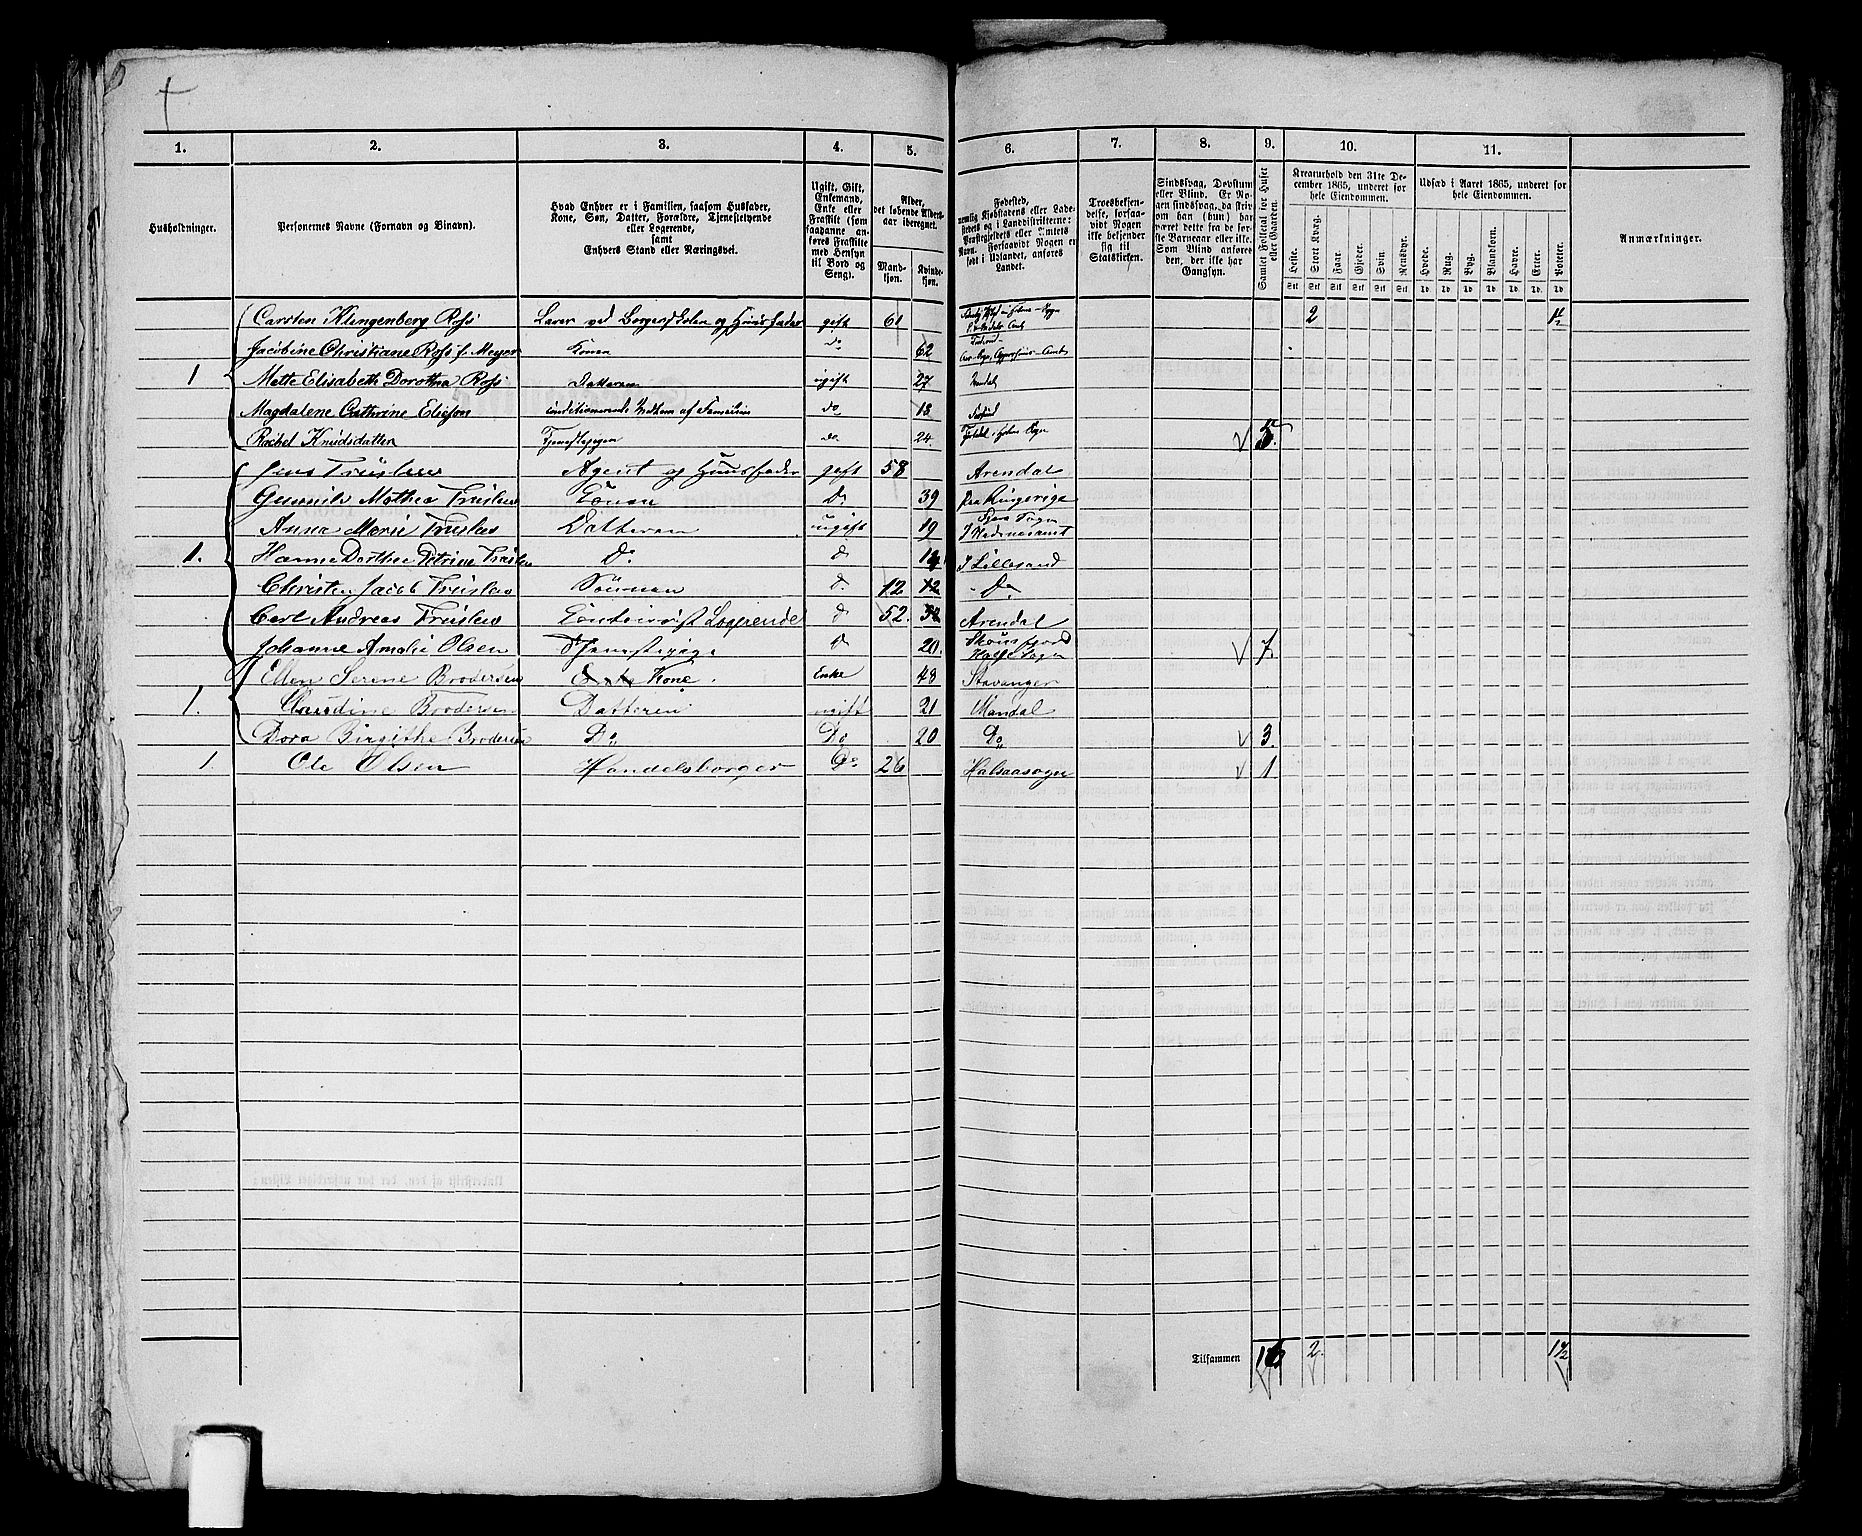 1. 2. 3. 4. 5. 6. 7. 8. 9. 10. 11.
Husholdninger.
Personernes Navne (Fornavn og Binavn).
Hvad Enhver er i Familien, saasom Husfader,
Kone, Søn, Datter, Forældre, Tjenestetyende
eller Logerende,
samt
Enhvers Stand eller Næringsvei.
Ugift, Gift,
Enkemand,
Enke eller
Fraskilt (som
saadanne an-
føres Fraskilte
med Hensyn
til Bord og
Seng).
Alder,
det løbende Alders-
aar iberegnet.
Mand-
kjøn.
Kvinde-
kjøn.
Fødested,
nemlig Kjøbstadens eller Lade-
stedets og i Landdistrikterne:
Præstegjeldets eller Amtets
Navn. Forsaavidt Nogen er
født i Udlandet, anføres
Landet.
Troesbekjen-
delse, forsaa-
vidt Nogen
ikke bekjender
sig til
Statskirken.
Sindssvag, Døvstum
eller Blind. Er No-
gen sindssvag, da skri-
ves om han (hun) har
været dette fra de før-
ste Barneaar eller ikke.
Som Blind ansees
den, der ikke har
Gangsyn.
Samlet Folketal for Huset
eller Gaarden.
Kreaturhold den 31te De-
cember 1865, underet for
hele Eiendommen.
Heste. Stort Kvæg. Faar. Gjeder. Svin. Rensdyr.
Stk Stk Stk Stk Stk Stk
Udsæd i Aaret 1865, underet for
hele Eiendommen.
Hvede. Rug. Byg. Blandkorn. Havre. Erter. Poteter.
Td. Td. Td. Td. Td. Td. Td.
Anmærkninger.
Carsten Klingenberg Ross Lærer ved Borgerskolen og Huusfader gift 61 2 1½
Jacobine Christiane Ross f. Meyer Konen do 62
1 Mette Elisabeth Dorothea Ross Datteren ugift 27 Mandal
Magdalene Cathrine Ellefson conditionerende Medlem af Familien do 18 Farsund
Rachel Knudsdatter Tjenestepigen do. 24. 5.
Jens Truslew Agent og Huusfader gift 58 Arendal
Gunnild Mathea Truslew Konen Do. 39 Paa Ringerige
Anna Marie Truslew Datteren ugift 19 I Hedmarksamt
1. Hanne Dorthea Petrine Truslew Do. d 14 I Lillesand
Christen Jacob Truslew Sönnen D. 12 Do
Carl Andreas Truslew Contoirist Logerende d 52. Arendal
Johanne Amalie Olsen Tjenestepige d 20. 7.
Ellen Serene Brodersen Kone. Enke 48 Stavanger
1. Claudine Brodersen Datteren ugift 21 Mandal
Dora Birgithe Brodersen Do Do 20 Do 3.
1. Ole Olsen Handelsborger Do 26 Halsaasogn 1
Tilsammen 16 2. 1½